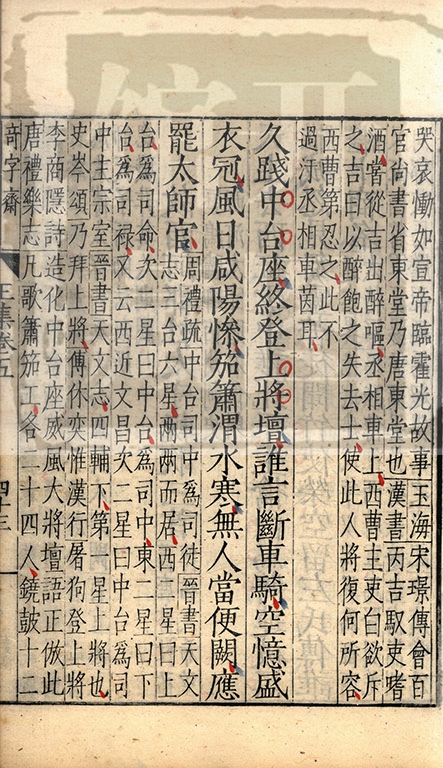 哭哀慟如宣帝臨霍光故事玉海宋璟傳會百
官尚書省東堂乃唐東堂也漢書丙吉馭吏嗜
酒嘗從吉出醉嘔丞相車上西曹主吏白欲斥
之吉曰以醉飽之失去士使此人將復何所容
西曹第忍之此不
過汙丞相車茵耳
久踐中台座終登上將壇誰言斷車騎空憶盛
衣冠風日咸陽慘笳簫渭水寒無人當便闕應
罷太師官
周禮疏中台司中為司徒晉書天文
志三台六星兩兩而居西二星曰上
台為司命次二星曰中台為司中東二星曰下
台為司祿又云西近文昌次二星曰中台為司
中主宗室晉書天文志四輔下第一星上將也
史岑頌乃拜上將傅休奕惟漢行屠狗登上將
李商隱詩造化中台座威風大將壇語正倣此
唐禮樂志凡歌簫笳工各二十四人鐃鼓十二
奇字齋
王集卷五
四十三